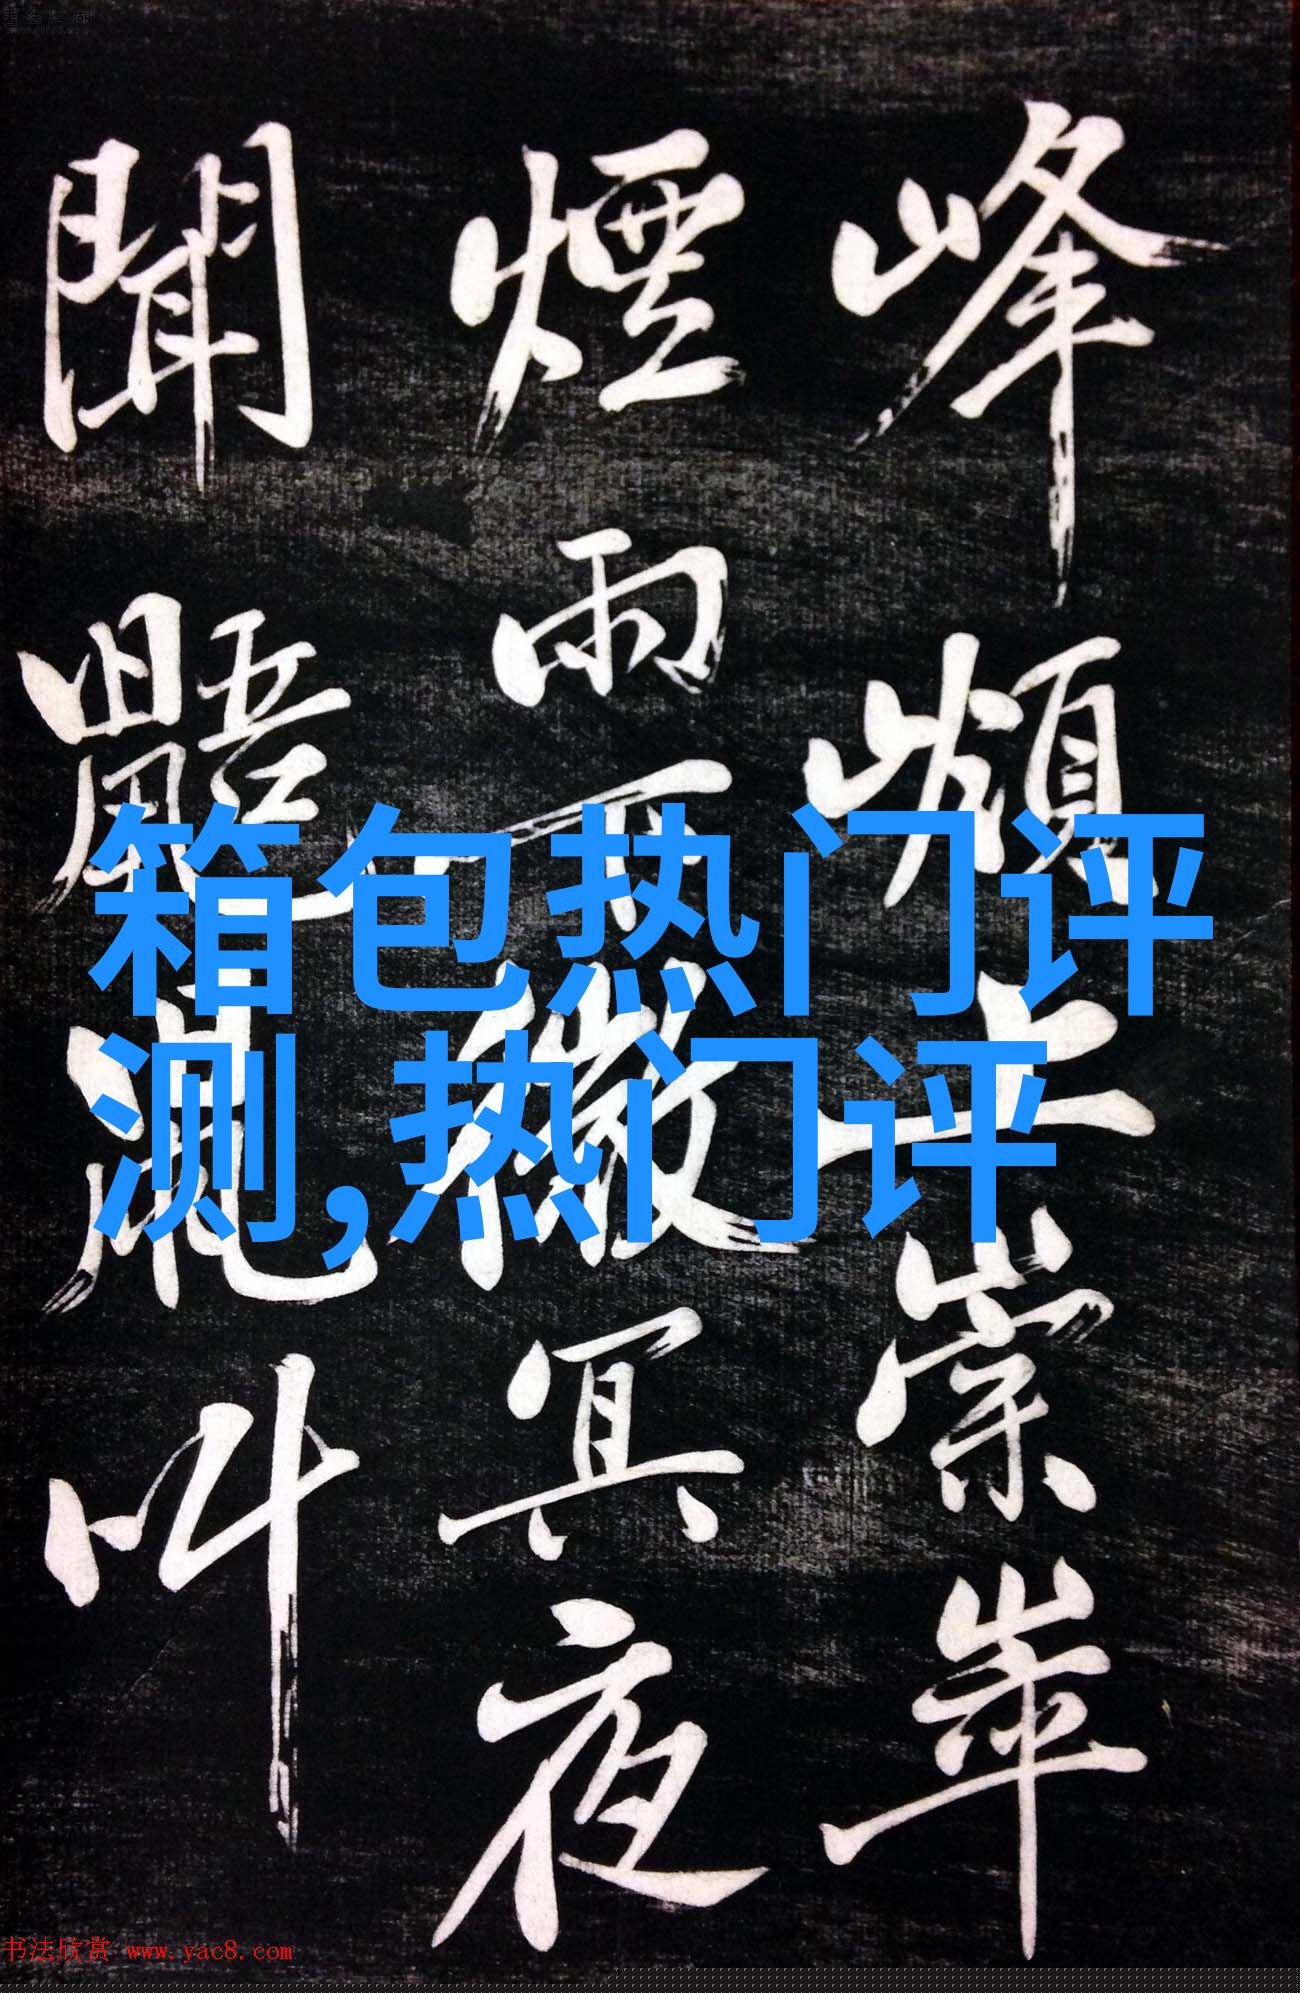 峰上崇崒
煙雨下微冥夜
聞鼯鼠叫
箱包热门评
测,热门评
书法欣赏 www.yac8.com